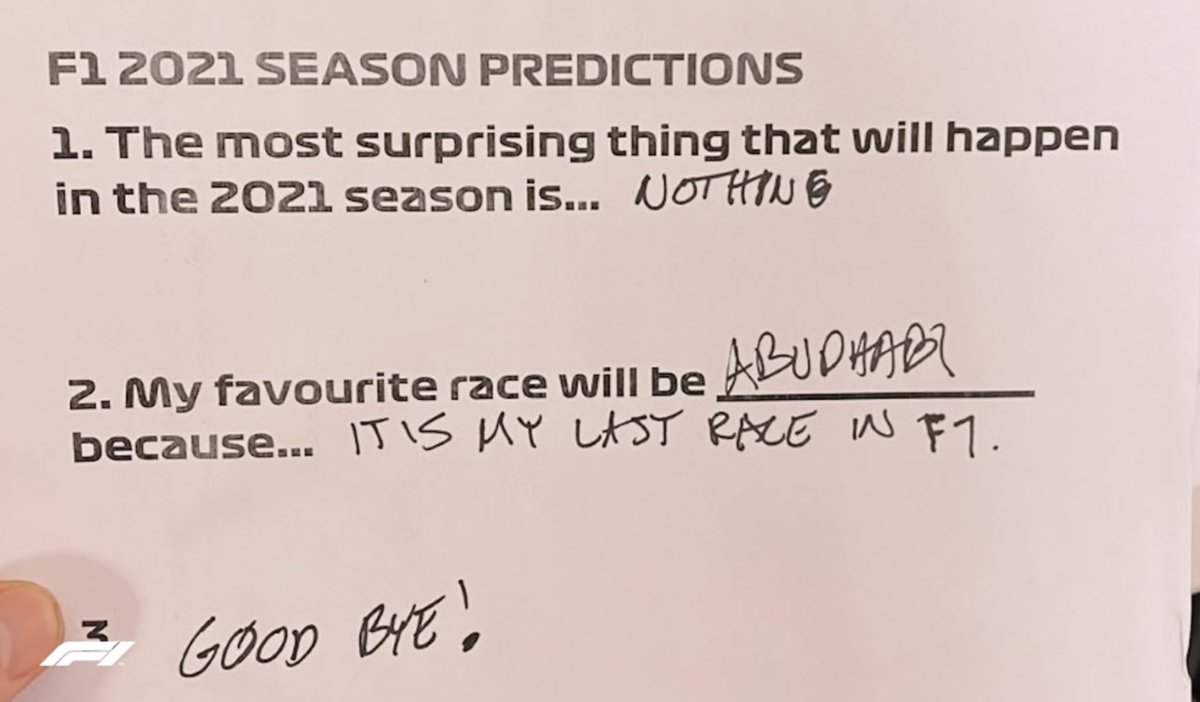 F1 2021 SEASON PREDICTIONS
1. The most surprising thing that will happen
in the 2021 season is... NOTHING
2. My favourite race will be ABUDHABI
because... IT IS MY LAST RACE IN F1.
3 GOOD BYE!
F1